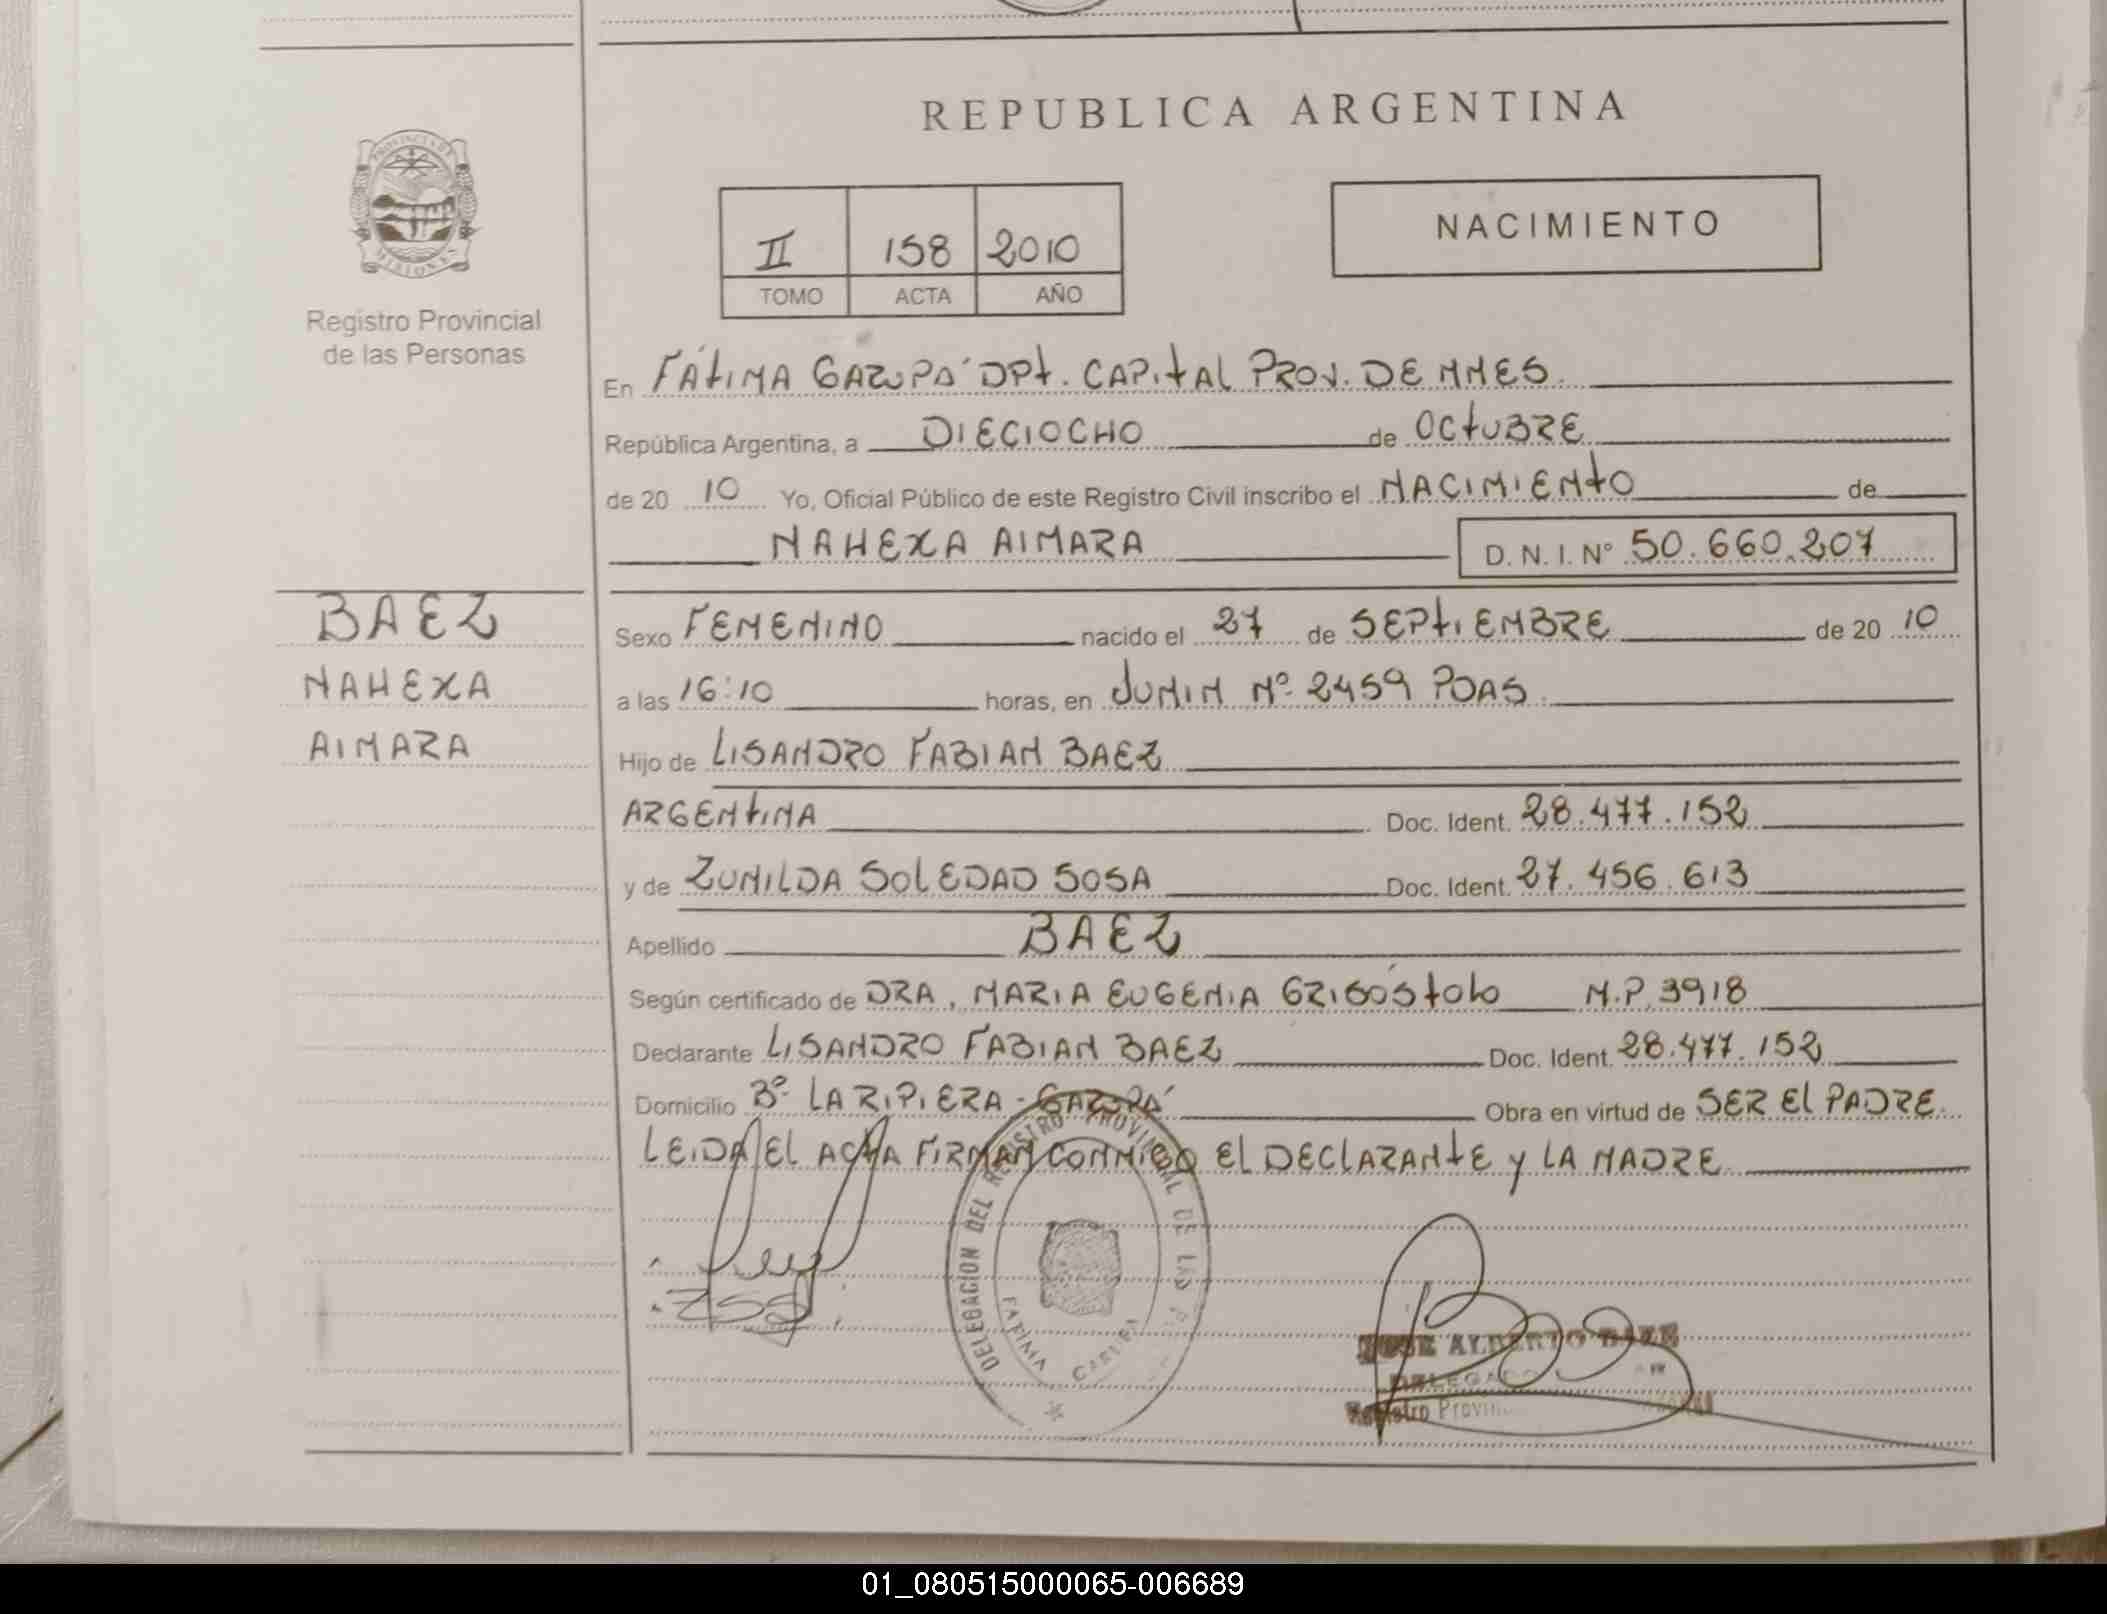 REPUBLICA ARGENTINA
PROVINCIA DE
MISIONES
Registro Provincial
de las Personas
II 158 2010
TOMO ACTA AÑO
NACIMIENTO
En FÁTIMA GARUPÁ DPt. CAPITAL PROV. DE MNES.
República Argentina, a DIECIOCHO de OCTUBRE
de 20 10 Yo, Oficial Público de este Registro Civil inscribo el NACIMIENTO de
NAHEXA AIMARA D. N. I. Nº 50.660.207
BAEZ
NAHEXA
AIMARA
Sexo FEMENINO nacido el 27 de SEPTIEMBRE de 20 10
a las 16:10 horas, en JUNIN Nº 2459 PDAS.
Hijo de LISANDRO FABIAN BAEZ
ARGENTINA Doc. Ident. 28.477.152
y de ZUNILDA SOLEDAD SOSA Doc. Ident. 27.456.613
Apellido BAEZ
Según certificado de DRA. MARIA EUGENIA GRISÓSTOLO M.P. 3918
Declarante LISANDRO FABIAN BAEZ Doc. Ident. 28.477.152
Domicilio Bº LA RIPIERA - GARUPÁ Obra en virtud de SER El PADRE.
LEIDA EL ACTA FIRMAN CONMIGO El DECLARANTE y LA MADRE
DELEGACION DEL REGISTRO PROVINCIAL DE LAS
FATIMA GARUPA
JOSE ALBERTO BAEZ
DELEGADO
Registro Provin
01_080515000065-006689